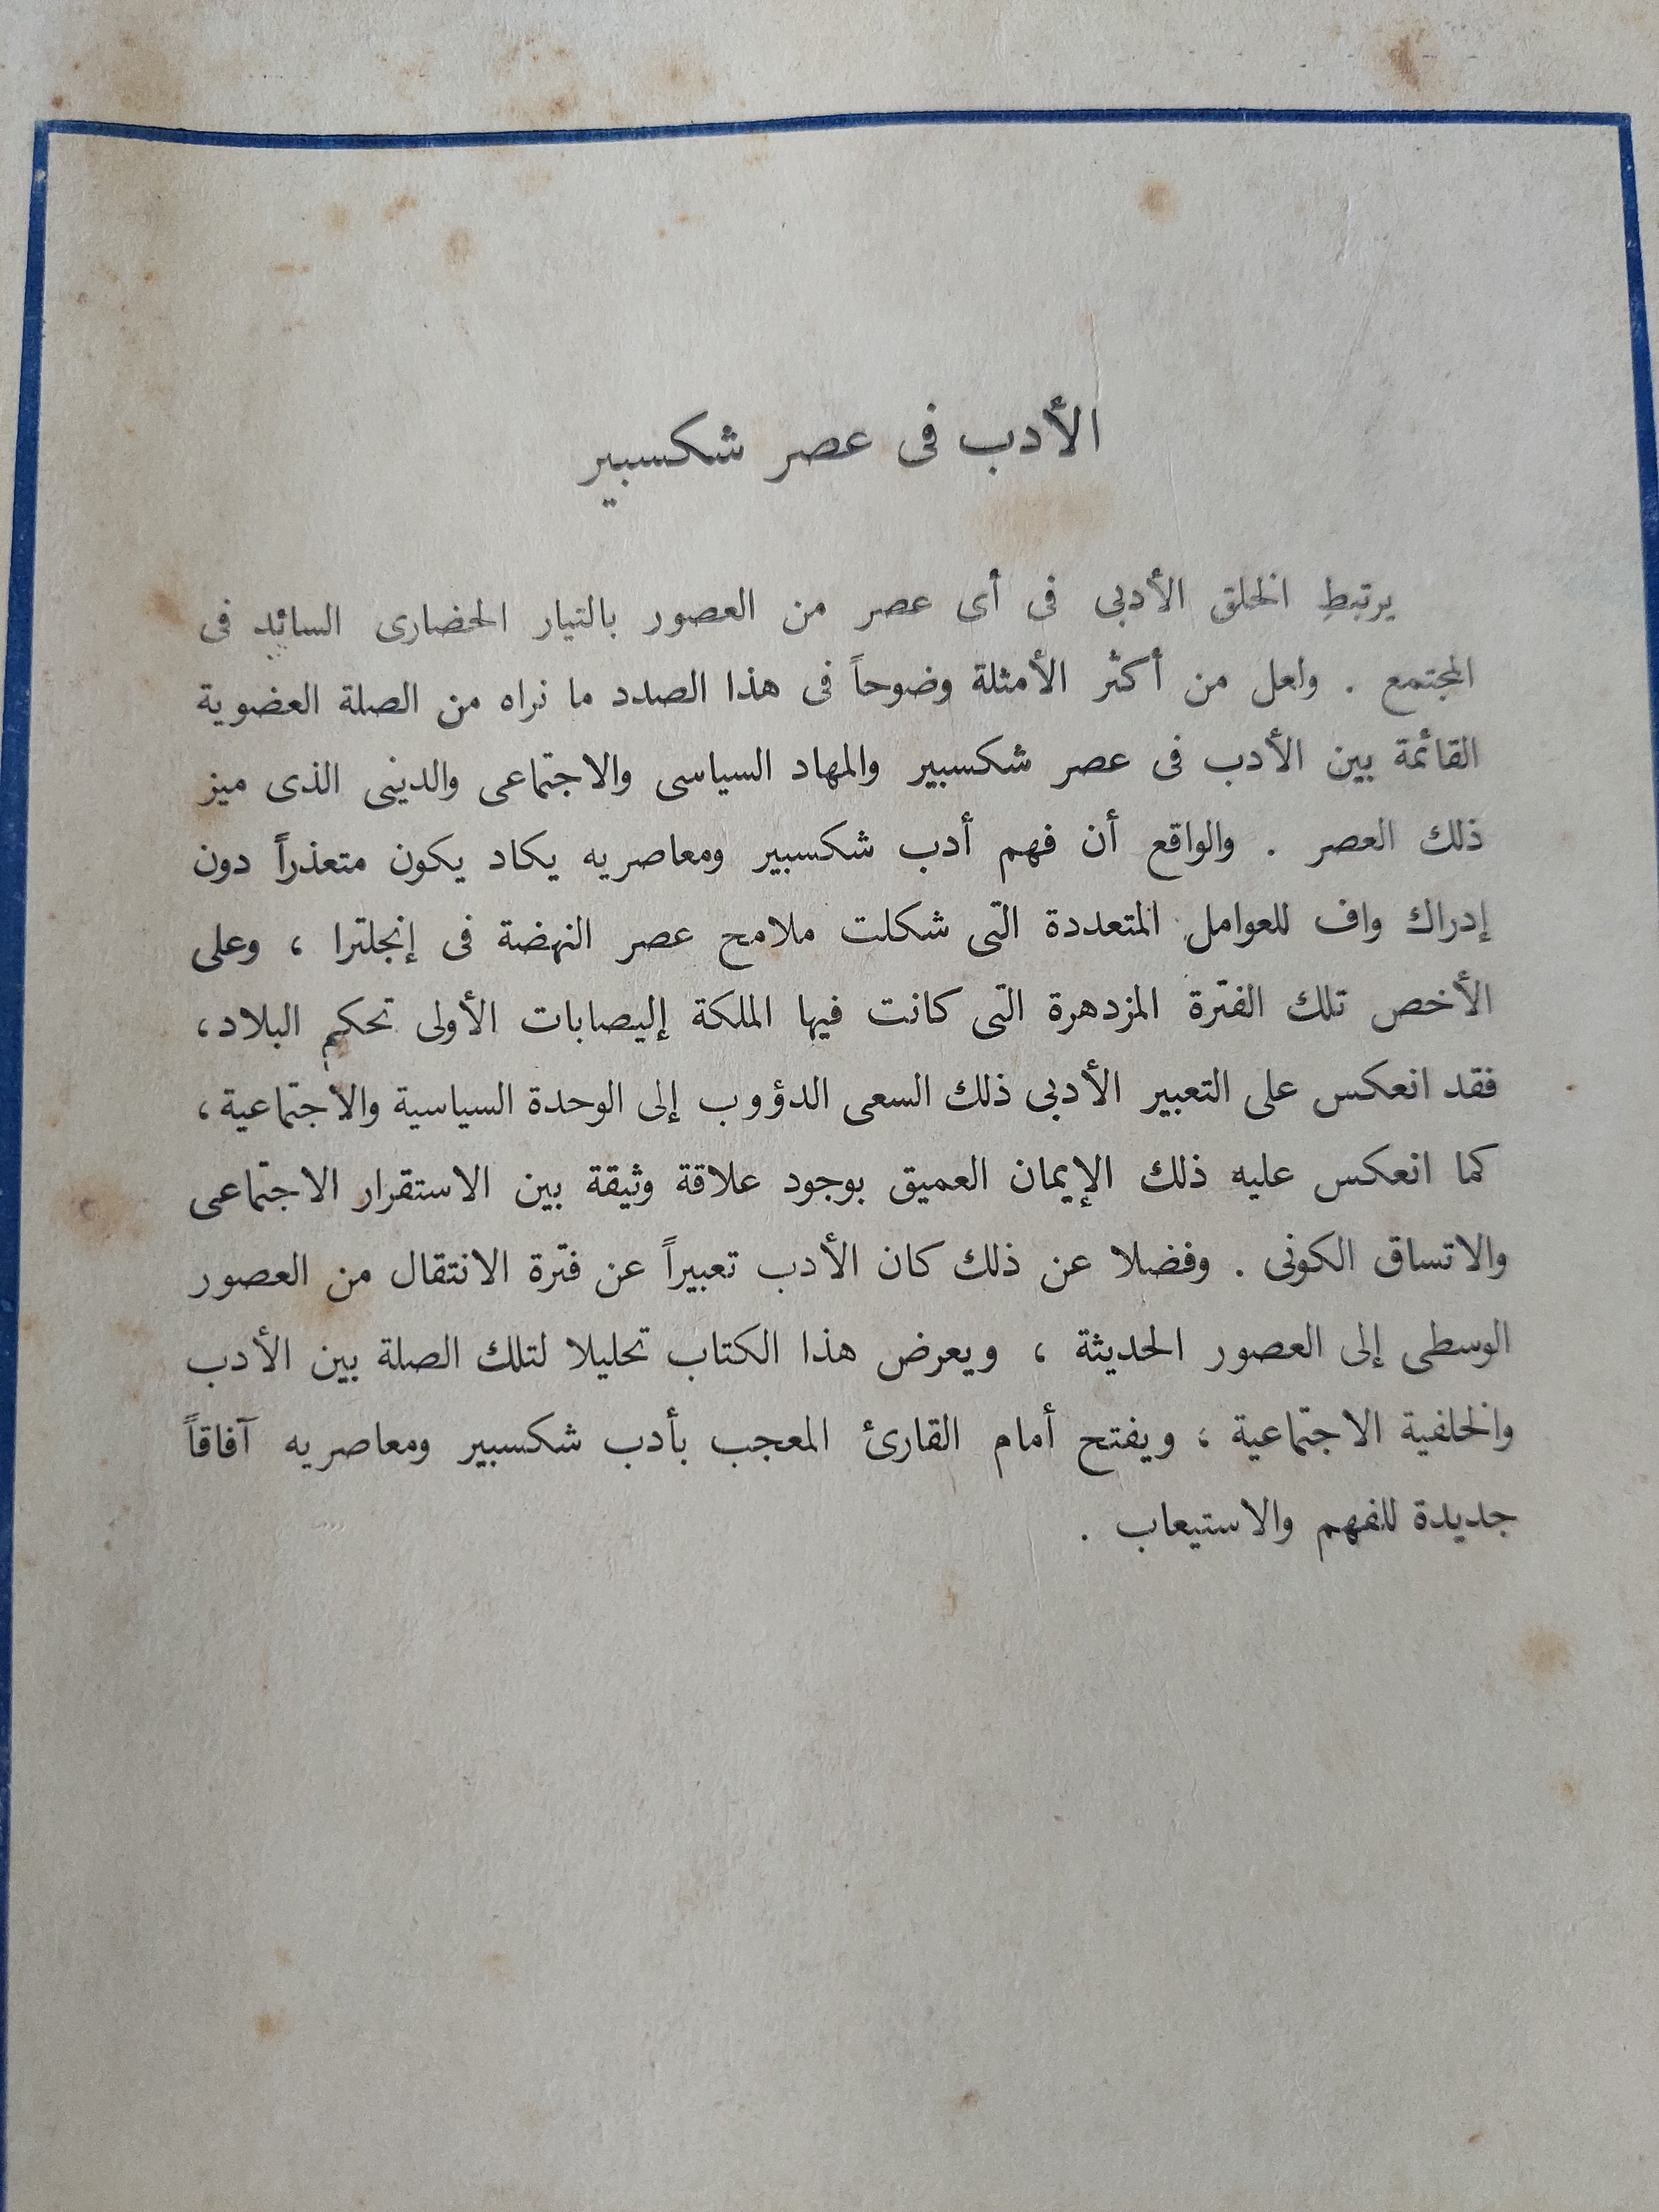 الأدب فى عصر شكسبير
يرتبط الخلق الأدبى فى أى عصر من العصور بالتيار الحضارى السائد فى
المجتمع . ولعل من أكثر الأمثلة وضوحاً فى هذا الصدد ما نراه من الصلة العضوية
القائمة بين الأدب فى عصر شكسبير والمهاد السياسى والاجتماعى والدينى الذى ميز
ذلك العصر . والواقع أن فهم أدب شكسبير ومعاصريه يكاد يكون متعذراً دون
إدراك واف للعوامل المتعددة التى شكلت ملامح عصر النهضة فى إنجلترا ، وعلى
الأخص تلك الفترة المزدهرة التى كانت فيها الملكة إليصابات الأولى تحكم البلاد،
فقد انعكس على التعبير الأدبى ذلك السعى الدؤوب إلى الوحدة السياسية والاجتماعية،
كما انعكس عليه ذلك الإيمان العميق بوجود علاقة وثيقة بين الاستقرار الاجتماعى
والاتساق الكونى . وفضلا عن ذلك كان الأدب تعبيراً عن فترة الانتقال من العصور
الوسطى إلى العصور الحديثة ، ويعرض هذا الكتاب تحليلا لتلك الصلة بين الأدب
والخلفية الاجتماعية ، ويفتح أمام القارئ المعجب بأدب شكسبير ومعاصريه آفاقاً
جديدة للفهم والاستيعاب .